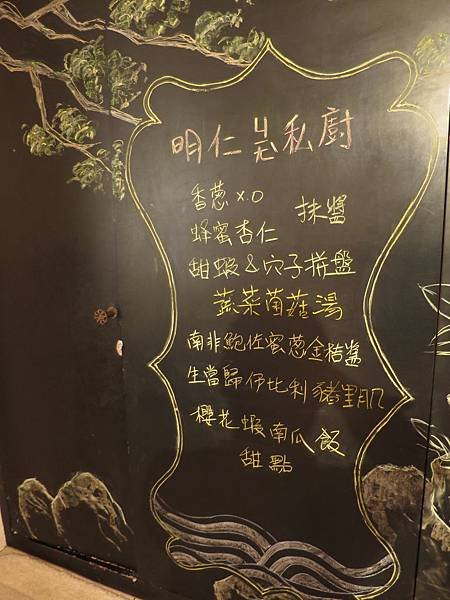 明仁ㄐ式私廚
香蔥X.O
抹醬
蜂蜜杏仁
甜蝦&穴子拼盤
蔬菜菌菇湯
南非鮑佐蜜蔥金桔醬
生當歸伊比利豬里肌
櫻花蝦南瓜飯
甜點